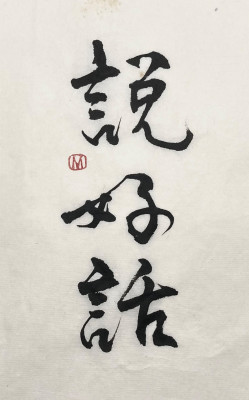 說好話